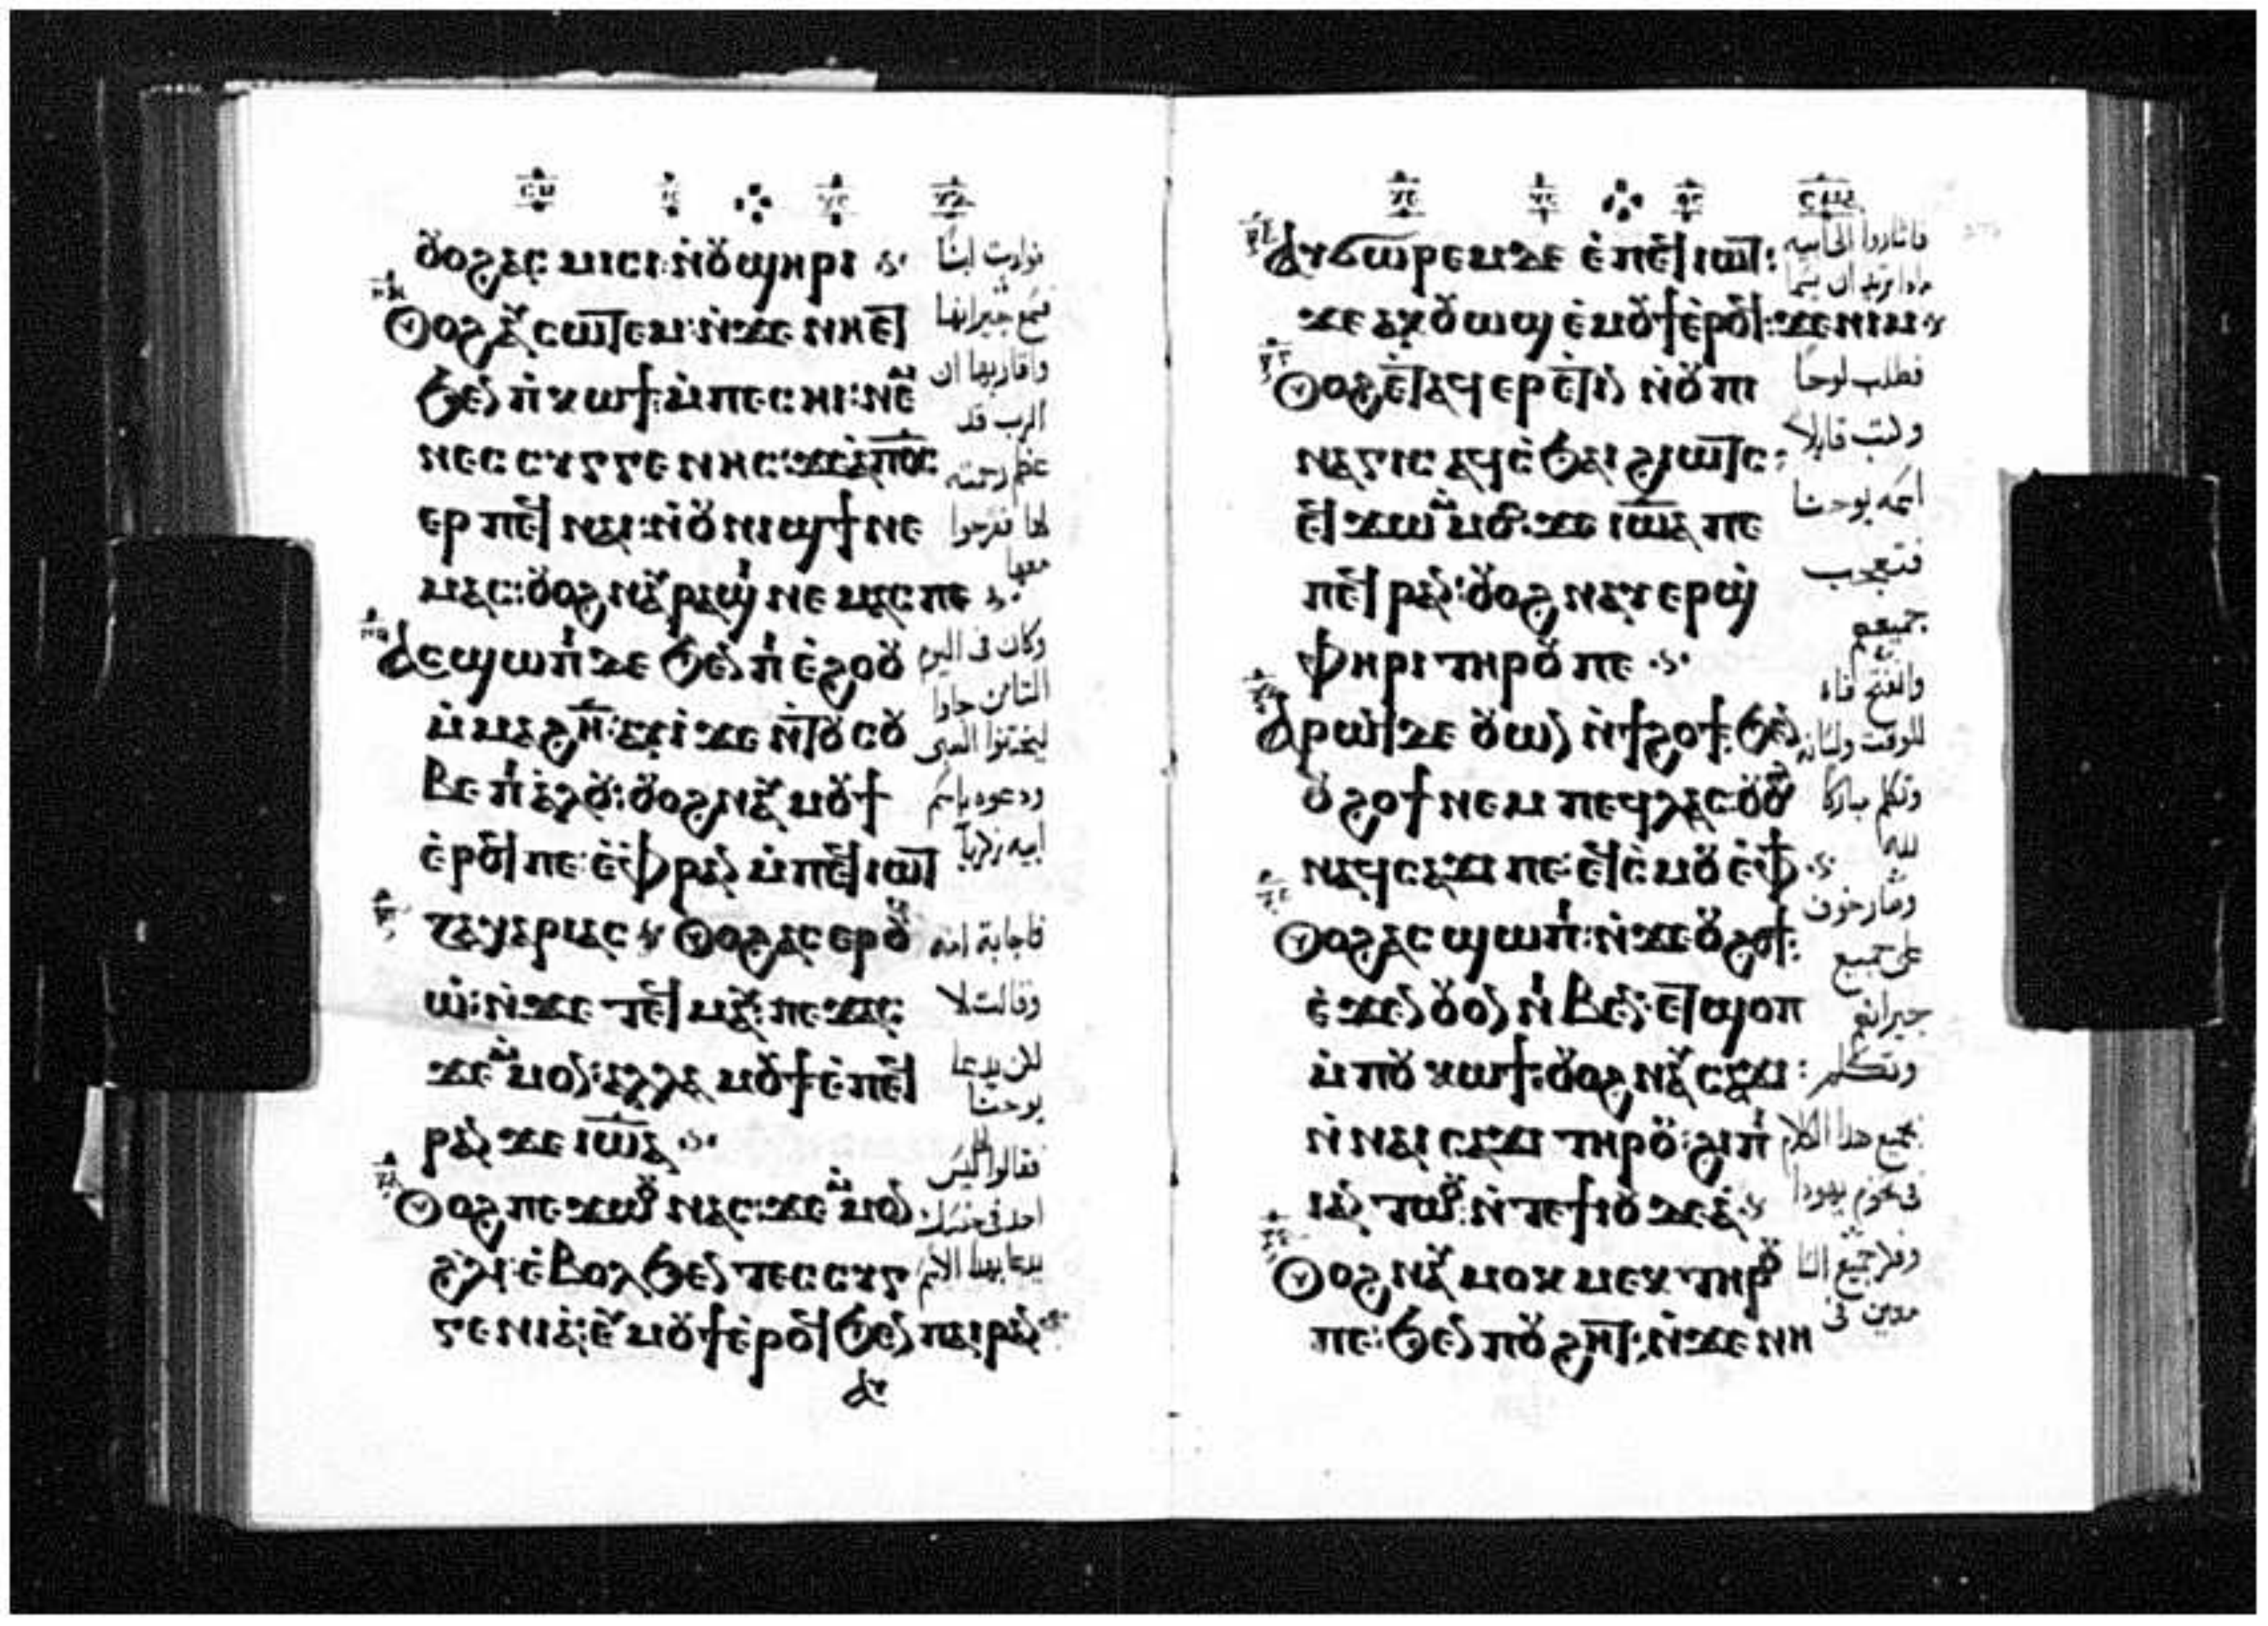 ⲟⲩⲟϩ ⲁⲥⲙⲓⲥⲓ: ⲛ̀ⲟⲩϣⲏⲣⲓ
ⲟⲩⲟϩ ⲁⲩⲥⲱⲧⲉⲙ: ⲛ̀ϫⲉ ⲛⲏⲉⲧ
ϧⲉⲛ ⲡ̀ⲕⲱϯ: ⲙ̀ⲡⲉⲥⲏⲓ: ⲛⲉⲙ
ⲛⲉⲥⲥⲩⲅⲅⲉⲛⲏⲥ: ϫⲉ ⲁ̀ⲡⲟ̅ⲥ̅
ⲉⲣ ⲡⲉϥⲛⲁⲓ: ⲛ̀ⲟⲩⲛⲓϣϯ ⲛⲉ
ⲙⲁⲥ: ⲟⲩⲟϩ ⲛⲁⲩⲣⲁϣⲓ ⲛⲉⲙⲁⲥ ⲡⲉ
ⲁⲥϣⲱⲡⲓ ⲇⲉ ϧⲉⲛ ⲡⲓⲉ̀ϩⲟⲟⲩ
ⲙ̀ⲙⲁϩⲏ̅: ⲁⲩⲓ̀ ϫⲉ ⲛ̀ⲧⲟⲩⲥⲟⲩ
ⲃⲉ ⲡⲓⲁ̀ⲗⲟⲩ: ⲟⲩⲟϩ ⲛⲁⲩⲙⲟⲩϯ
ⲉ̀ⲣⲟϥ ⲡⲉ: ⲉ̀ⲫⲣⲁⲛ ⲙ̀ⲡⲉϥⲓⲱⲧ
ⲍⲁⲭⲁⲣⲓⲁⲥ ⲟⲩⲟϩ ⲁⲥⲉⲣⲟⲩ
ⲱ̀: ⲛ̀ϫⲉ ⲧⲉϥⲙⲁⲩ: ⲡⲉϫⲁⲥ
ϫⲉ ⲙ̀ⲙⲟⲛ: ⲁⲗⲗⲁ ⲙⲟⲩϯ ⲉ̀ⲡⲉϥ
ⲣⲁⲛ ϫⲉ ⲓⲱ̅ⲁ̅
ⲟⲩⲟϩ ⲡⲉϫⲱⲟⲩ ⲛⲁⲥ: ϫⲉ ⲙ̀ⲙⲟⲛ
ϩ̀ⲗⲓ: ⲉ̀ⲃⲟⲗ ϧⲉⲛ ⲧⲉⲥⲥⲩⲅ
ⲅⲉⲛⲓⲁ: ⲉⲩⲙⲟⲩϯ ⲉ̀ⲣⲟϥ ϧⲉⲛ ⲡⲁⲓⲣⲁⲛ
ⲁⲩ
فولدت ابنًا
فسمع جيرانها
واقاربها ان
الرب قد
عظم رحمته
لها ففرحوا
معها
وكان فى اليوم
الثامن جاوا
ليختنوا الصبى
ودعوه باسم
ابيه زكريا
فاجابة امه
وقالت لا
لكن يدعا
يوحنا
فقالوا ليس
احد فى جنسك
يدعا بهذا الاسم
ⲁⲩϭⲱⲣⲉⲙ ⲇⲉ ⲉ̀ⲡⲉϥⲓⲱⲧ:
ϫⲉ ⲁⲕⲟⲩⲱϣ ⲉ̀ⲙⲟⲩϯ ⲉ̀ⲣⲟϥ: ϫⲉ ⲛⲓⲙ
ⲟⲩⲟϩ ⲉ̀ⲧⲁϥⲉⲣⲉ̀ⲧⲓⲛ ⲛ̀ⲟⲩⲡⲓ
ⲛⲁⲅⲓⲥ ⲁϥⲥ̀ϧⲁⲓ ϩⲓⲱⲧⲥ:
ⲉϥϫⲱ ⲙ̀ⲙⲟⲥ: ϫⲉ ⲓⲱ̅ⲁ̅ ⲡⲉ
ⲡⲉϥⲣⲁⲛ: ⲟⲩⲟϩ ⲛⲁⲩⲉⲣϣ̀
ⲫⲏⲣⲓ ⲧⲏⲣⲟⲩ ⲡⲉ
ⲁⲣⲱϥ ⲇⲉ ⲟⲩⲱⲛ ⲛ̀ϯϩⲟϯ: ϧⲉⲛ
ⲟⲩϩⲟϯ ⲛⲉⲙ ⲡⲉϥⲗⲁⲥ: ⲟⲩⲟϩ
ⲛⲁϥⲥⲁϫⲓ ⲡⲉ: ⲉϥⲥ̀ⲙⲟⲩ ⲉ̀ⲫϯ
ⲟⲩⲟϩ ⲁⲥϣⲱⲡⲓ: ⲛ̀ϫⲉ ⲟⲩϩⲟϯ:
ⲉ̀ϫⲉⲛ ⲟⲩⲟⲛ ⲛⲓⲃⲉⲛ: ⲉⲧϣⲟⲡ
ⲙ̀ⲡⲟⲩⲕⲱϯ: ⲟⲩⲟϩ ⲛⲁⲩⲥⲁϫⲓ:
ⲛ̀ⲛⲁⲓⲥⲁϫⲓ ⲧⲏⲣⲟⲩ: ϩⲓ ⲡⲓ
ⲁⲛⲧⲱⲟⲩ: ⲛ̀ⲧⲉ ϯⲓⲟⲩⲇⲉⲁ̀
ⲟⲩⲟϩ ⲛⲁⲩⲙⲟⲕⲙⲉⲕ ⲧⲏⲣⲟⲩ
ⲡⲉ: ϧⲉⲛ ⲡⲟⲩϩⲏⲧ: ⲛ̀ϫⲉ ⲛⲏ
فاشاروا الى ابيه
ماذا تريد ان يسما
فطلب لوحا
وكتب قايلا
اسمه يوحنا
فتعجب
جميعهم
وانفتح فاه
للوقت ولسانه
وتكلم مباركا
لله
وصار خوف
على جميع
جيرانهم
وتكلم
بجميع هذا الكلام
فى تخوم يهودا
وفكر جميع السا
معين فى